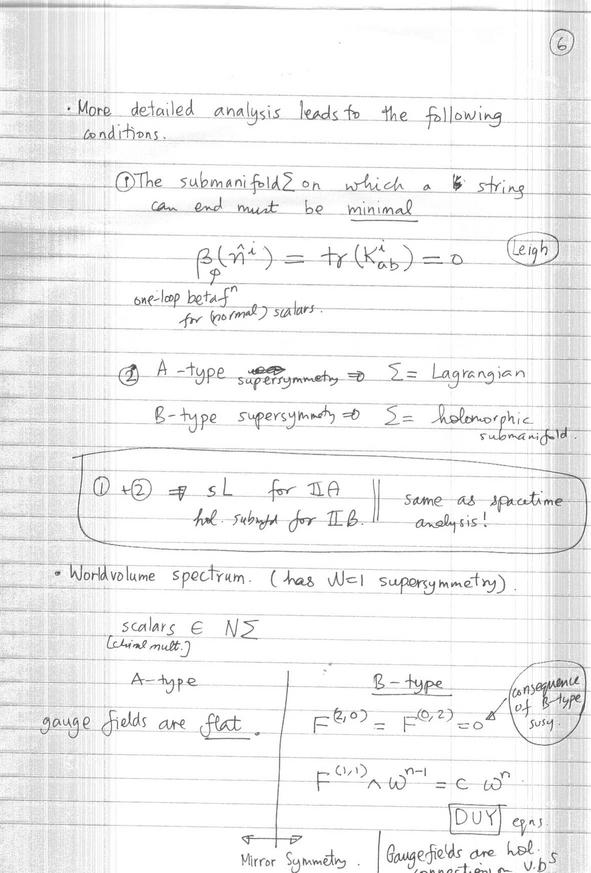 6
• More detailed analysis leads to the following
conditions.
① The submanifold Σ on which a string
can end must be minimal
β(n̂ⁱ) = tr(Kⁱ_ab) = 0
Leigh
one-loop beta fⁿ
for (normal) scalars.
② A-type supersymmetry ⇒ Σ = Lagrangian
B-type supersymmetry ⇒ Σ = holomorphic
submanifold.
① + ② ⇒ sL for IIA || same as spacetime
hol. submfd for IIB. || analysis!
• Worldvolume spectrum. (has N=1 supersymmetry).
scalars ∈ NΣ
[chiral mult.]
A-type
B-type
consequence
of B-type
susy.
gauge fields are flat.
F^(2,0) = F^(0,2) = 0
F^(1,1) ∧ ω^(n-1) = c ωⁿ.
DUY eqns.
↔
Mirror Symmetry.
Gauge fields are hol.
connections on v.b's